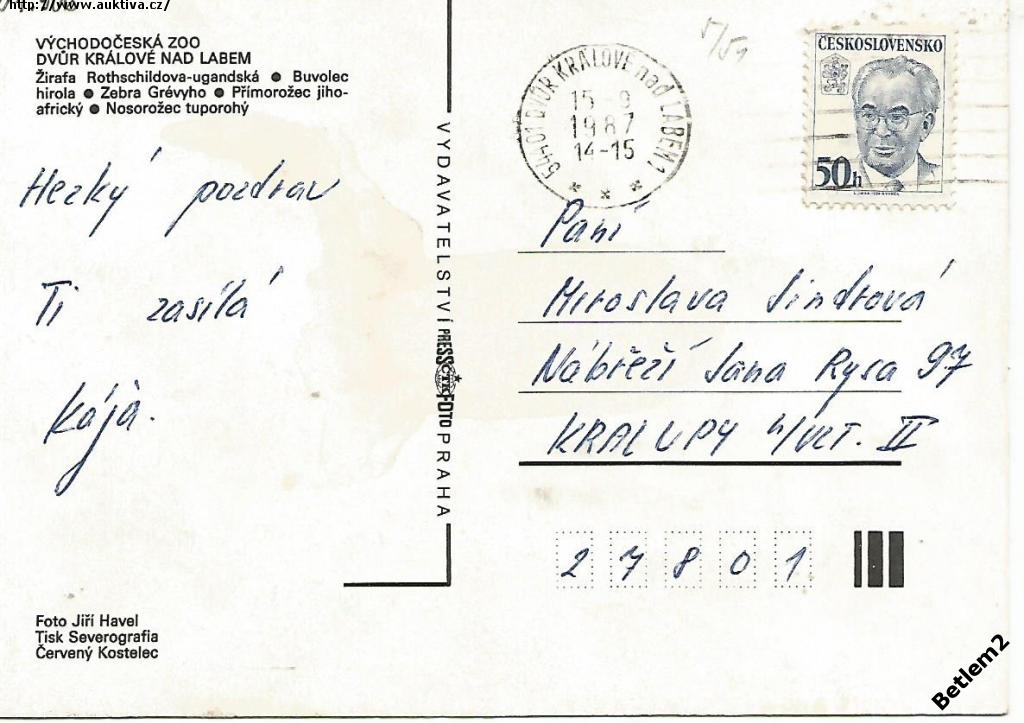 http://www.auktiva.cz/
VÝCHODOČESKÁ ZOO
DVŮR KRÁLOVÉ NAD LABEM
Žirafa Rothschildova-ugandská ● Buvolec
hirola ● Zebra Grévyho ● Přímorožec jiho-
africký ● Nosorožec tuporohý
Hezký pozdrav
Ti zasílá
Kája.
Foto Jiří Havel
Tisk Severografia
Červený Kostelec
VYDAVATELSTVÍ PRESSFOTO PRAHA
ČTK
544 01 DVŮR KRÁLOVÉ nad LABEM 1
15-9
1987
14-15
ČESKOSLOVENSKO
50h
Paní
Miroslava Jindrová
Nábřeží Jana Rysa 97
KRALUPY n/VLT. II
27801
Betlem2